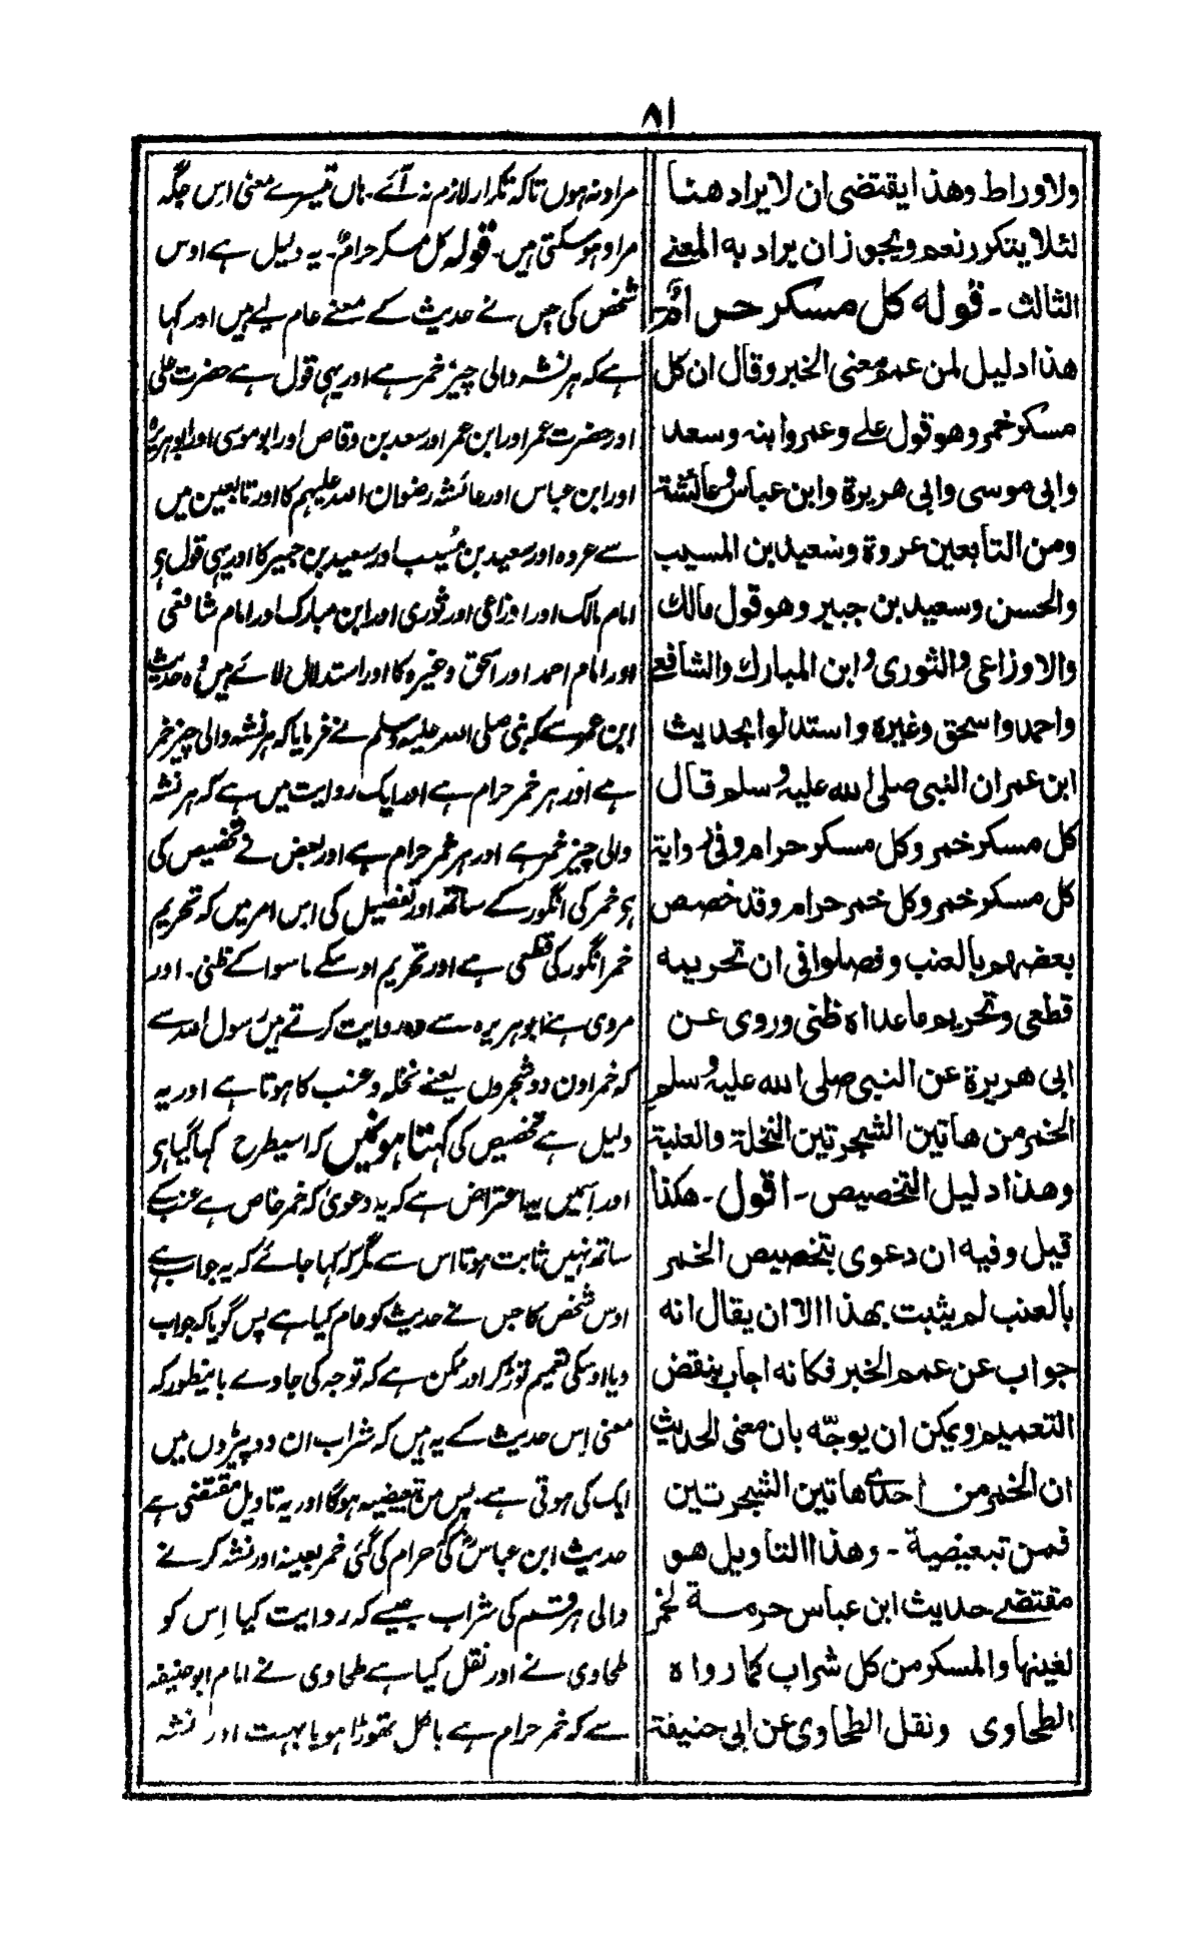 ۸۱
ولا وراط وهذا يقتضى ان لا يراد هنا
لئلا يتكرر نعم ويجوز ان يراد به المعنے
الثالث ۔ قوله كل مسكر حرام
هذا دليل لمن عمم معنى الخبر وقال ان كل
مسكر خمر وهو قول علے وعمر وابنه وسعد
وابى موسى وابى هريرة وابن عباس وعائشة
ومن التابعين عروة وسعيد بن المسيب
والحسن وسعيد بن جبير وهو قول مالك
والاوزاعى والثورى وابن المبارك والشافعے
واحمد واسحق وغيره واستدلوا بحديث
ابن عمر ان النبى صلى الله عليه وسلم قال
كل مسكر خمر وكل مسكر حرام وفى رواية
كل مسكر خمر وكل خمر حرام وقد خصص
بعضهم بالعنب وفصلوا فى ان تحريمه
قطعى وتحريم ماعداه ظنى وروى عن
ابى هريرة عن النبى صلى الله عليه وسلم
الخمر من هاتين الشجرتين النخلة والعنبة
وهذا دليل التخصيص ۔ اقول ۔ هكذا
قيل وفيه ان دعوى بتخصيص الخمر
بالعنب لم يثبت بهذا الا ان يقال انه
جواب عن عمم الخبر فكانه اجاب بنقض
التعميم ويمكن ان يوجّه بان معنى الحديث
ان الخمر من احدے هاتين الشجرتين
فمن تبعيضية ۔ وهذا التاويل هو
مقتضے حديث ابن عباس حرمة لخمر
لعينها والمسكر من كل شراب كما رواه
الطحاوى ونقل الطحاوى عن ابى حنيفة
مراد نہ ہوں تاکہ تکرار لازم نہ آئے۔ ہاں تیسرے معنی اِس جگہ
مراد ہو سکتی ہیں۔ قولہ کل مسکر حرام۔ یہ دلیل ہے اوس
شخص کی جس نے حدیث کے معنے عام لیے ہیں اور کہا
ہے کہ ہر نشہ والی چیز خمر ہے اور یہی قول ہے حضرت علی
اور حضرت عمر اور ابن عمر اور سعد بن وقاص اور ابو موسی اور ابوہریرہ
اور ابن عباس اور عائشہ رضوان اللہ علیہم کا اور تابعین میں
سے عروہ اور سعید بن مُسیب اور سعید بن جبیر کا اور یہی قول ہی
امام مالک اور اوزاعی اور ثوری اور ابن مبارک اور امام شافعی
اور امام احمد اور اسحق وغیرہ کا اور استدلال لائے ہیں وہ حدیث
ابن عمر سے کہ نبی صلی اللہ علیہ وسلم نے فرمایا کہ ہر نشہ والی چیز خمر
ہے اور ہر خمر حرام ہے اور ایک روایت میں ہے کہ ہر نشہ
والی چیز خمر ہے اور ہر خمر حرام ہے اور بعض نے تخصیص کی
ہو خمر کی انگور کے ساتھ اور تفصیل کی اس امر میں کہ تحریم
خمر انگور کی قطعی ہے اور تحریم اوسکے ماسوا کے ظنی۔ اور
مروی ہے ابو ہریرہ سے وہ روایت کرتے ہیں رسول اللہ سے
کہ خمر اون دو شجروں یعنے نخلہ وعنب کا ہوتا ہے اور یہ
دلیل ہے تخصیص کی کہتا ہوں میں کہ اسیطرح کہا گیا ہی
اور اسمیں یہ اعتراض ہے کہ یہ دعویٰ کہ خمر خاص ہے عنب کے
ساتھ نہیں ثابت ہوتا اس سے مگر کہ کہا جائے کہ یہ جواب ہے
اوس شخص کا جس نے حدیث کو عام کیا ہے پس گویا کہ جواب
دیا اوسکی تعمیم توڑ کر اور ممکن ہے کہ توجہ کی جاوے بانیطور کہ
معنی اِس حدیث کے یہ ہیں کہ شراب ان دو پیڑوں میں
ایک کی ہوتی ہے۔ پس من تبعیضیہ ہوگا اور یہ تاویل مقتضی ہے
حدیث ابن عباس کی حرام کی گئی خمر بعینہ اور نشہ کرنے
والی ہر قسم کی شراب جیسے کہ روایت کیا اِس کو
طحاوی نے اور نقل کیا ہے طحاوی نے امام ابو حنیفہ
سے کہ خمر حرام ہے بالکل تھوڑا ہو یا بہت اور نشہ